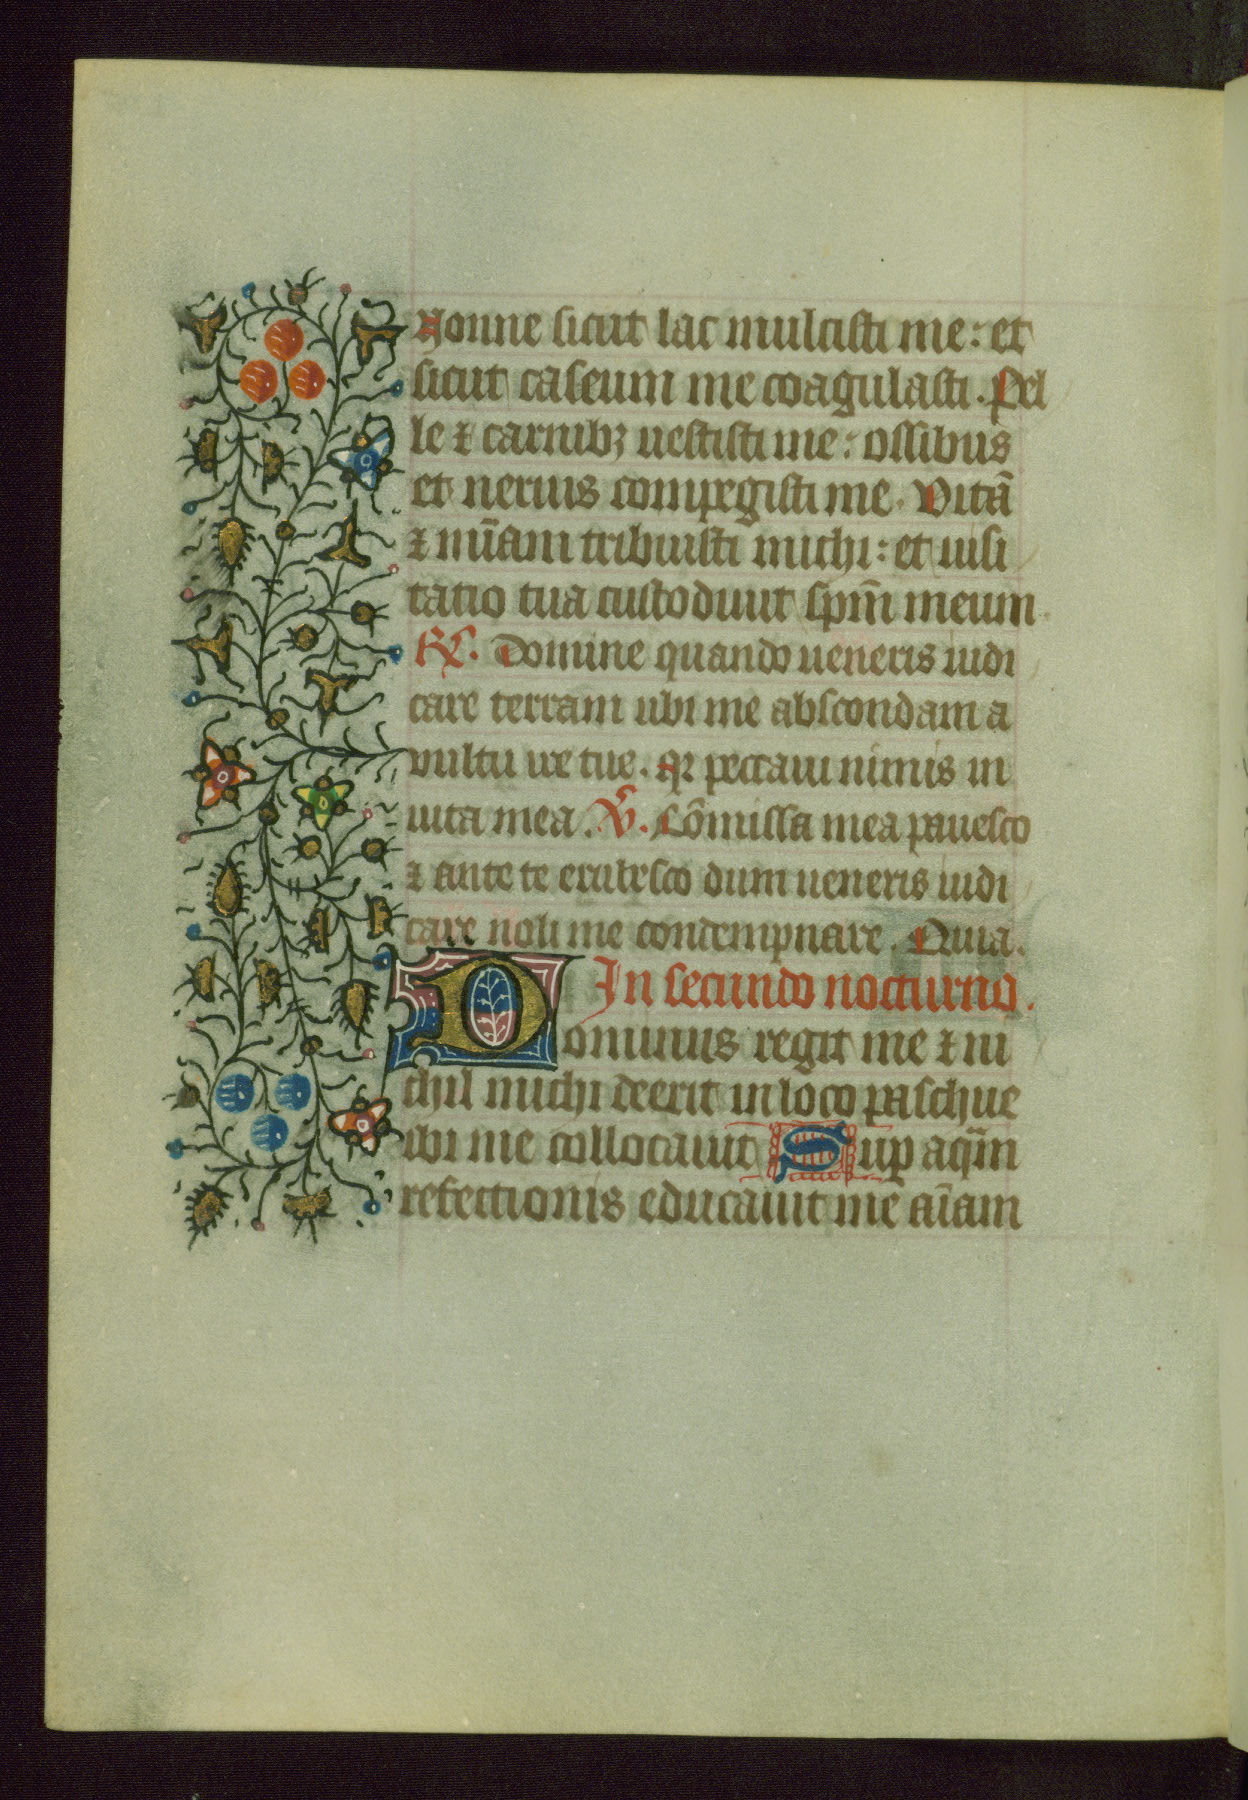 Nonne sicut lac mulcisti me: et
sicut caseum me coagulasti. Pel
le ⁊ carnibꝫ uestisti me: ossibus
et neruis compegisti me. Vitā
⁊ mīam tribuisti michi: et uisi
tatio tua custodiuit spm̄ meum.
℟. Domine quando ueneris iudi
care terram ubi me abscondam a
uultu ire tue. Qꝛ peccaui nimis in
uita mea. ℣. Cōmissa mea pauesco
⁊ ante te erubesco dum ueneris iudi
care noli me condempnare. Quia.
In secundo nocturno.
Dominus regit me ⁊ ni
chil michi deerit in loco paschue
ibi me collocauit Suꝑ aqm̄
refectionis educauit me aīam